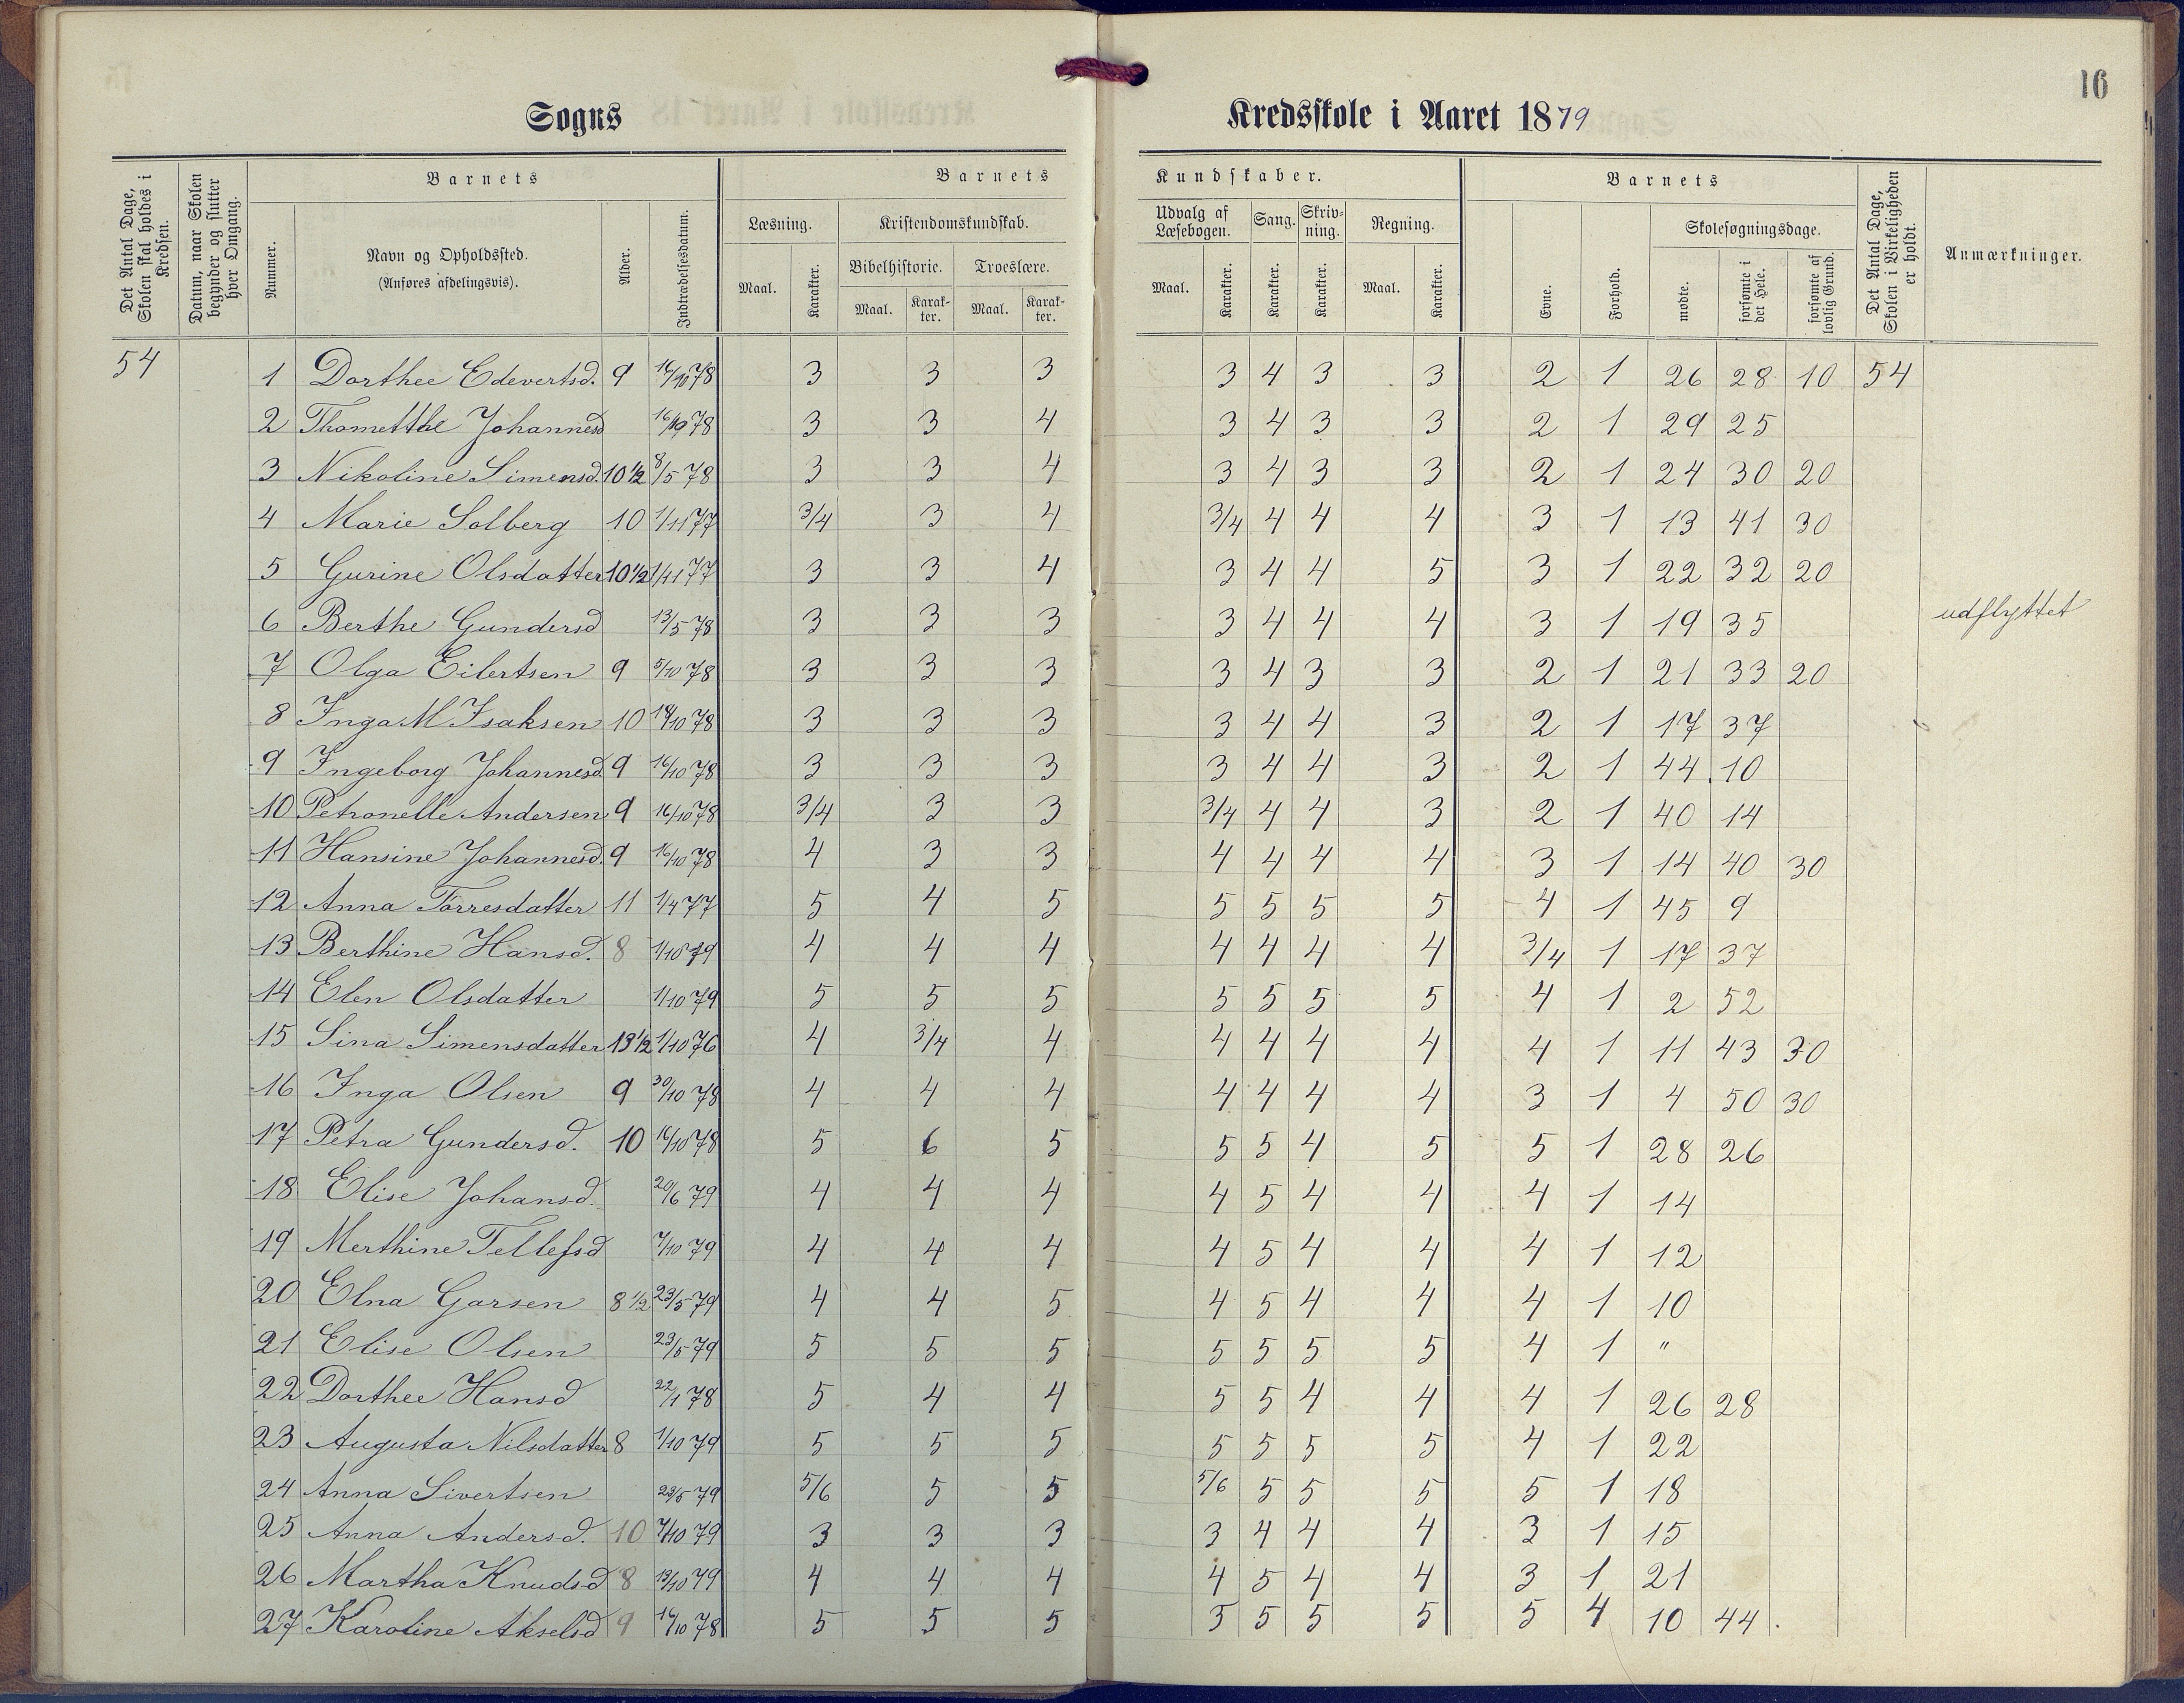 16
Sogns Kredsskole i Aaret 1879
Det Antal Dage, Skolen skal holdes i Kredsen.
Datum, naar Skolen begynder og slutter hver Omgang.
Barnets
Nummer.
Navn og Opholdssted.
(Anføres afdelingsvis).
Alder.
Indtrædelsesdatum.
Barnets Kundskaber.
Læsning.
Maal. Karakter.
Kristendomskundskab.
Bibelhistorie. Troeslære.
Maal. Karakter. Maal. Karakter.
Udvalg af Læsebogen.
Maal. Karakter.
Sang.
Karakter.
Skrivning.
Karakter.
Regning.
Maal. Karakter.
Barnets
Evne. Forhold.
Skolesøgningsdage.
mødte. forsømte i det Hele. forsømte af lovlig Grund.
Det Antal Dage, Skolen i Virkeligheden er holdt.
Anmærkninger.
54 1 Dorthee Edevertsd. 9 16/10 78 3 3 3 3 4 3 3 2 1 26 28 10 54
2 Thometthe Johannesd 16/10 78 3 3 4 3 4 3 3 2 1 29 25
3 Nikoline Simensd. 10 1/2 8/5 78 3 3 4 3 4 3 3 2 1 24 30 20
4 Marie Solberg 10 1/11 77 3/4 3 4 3/4 4 4 4 3 1 13 41 30
5 Gurine Olsdatter 10 1/2 1/11 77 3 3 4 3 4 4 5 3 1 22 32 20
6 Berthe Gundersd 13/5 78 3 3 3 3 4 4 4 3 1 19 35 udflyttet
7 Olga Eilertsen 9 5/10 78 3 3 3 3 4 3 3 2 1 21 33 20
8 Inga M Isaksen 10 18/10 78 3 3 3 3 4 4 3 2 1 17 37
9 Ingeborg Johannesd. 9 16/10 78 3 3 3 3 4 4 3 2 1 44 10
10 Petronelle Andersen 9 16/10 78 3/4 3 3 3/4 4 4 3 2 1 40 14
11 Hansine Johannesd. 9 16/10 78 4 3 3 4 4 4 4 3 1 14 40 30
12 Anna Torresdatter 11 1/4 77 5 4 5 5 5 5 5 4 1 45 9
13 Berthine Hansd. 8 1/10 79 4 4 4 4 4 4 4 3/4 1 17 37
14 Elen Olsdatter 1/10 79 5 5 5 5 5 5 5 4 1 2 52
15 Sina Simensdatter 13 1/2 1/10 76 4 3/4 4 4 4 4 4 4 1 11 43 30
16 Inga Olsen 9 30/10 78 4 4 4 4 4 4 4 3 1 4 50 30
17 Petra Gundersd. 10 16/10 78 5 6 5 5 5 4 5 5 1 28 26
18 Elise Johansd. 20/6 79 4 4 4 4 5 4 4 4 1 14
19 Merthine Tellefsd 7/10 79 4 4 4 4 5 4 4 4 1 12
20 Elna Garsen 8 1/2 23/5 79 4 4 5 4 5 4 4 4 1 10
21 Elise Olsen 23/5 79 5 5 5 5 5 5 5 4 1 "
22 Dorthee Hansd 22/1 78 5 4 4 5 5 4 4 4 1 26 28
23 Augusta Nilsdatter 8 1/10 79 5 5 5 5 5 5 5 4 1 22
24 Anna Sivertsen 23/5 79 5/6 5 5 5/6 5 5 5 5 1 18
25 Anna Andersd. 10 7/10 79 3 3 3 3 4 4 4 3 1 15
26 Martha Knudsd 8 13/10 79 4 4 4 4 5 4 4 3 1 21
27 Karoline Akselsd 9 16/10 78 5 5 5 5 5 5 5 5 4 10 44